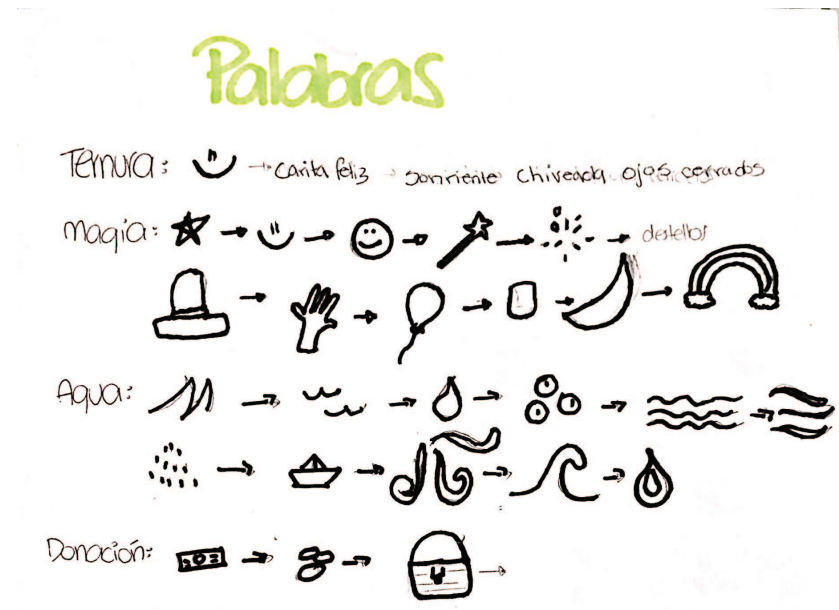 Palabras
Ternura: → carita feliz → sonriente chiveada ojos cerrados
Magia: → → → → → destellos
Agua:
Donación: